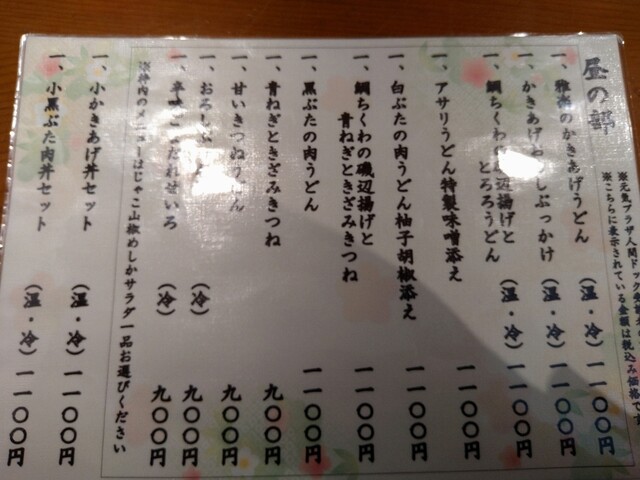 昼の部
※元気プラザ人間ドック
※こちらに表示されている金額は税込み価格です
一、雅楽のかきあげうどん（温・冷）一一〇〇円
一、かきあげおろしぶっかけ（温・冷）一一〇〇円
一、鯛ちくわの磯辺揚げと
とろろうどん（温・冷）一一〇〇円
一、アサリうどん特製味噌添え 一一〇〇円
一、白ぶたの肉うどん柚子胡椒添え 一一〇〇円
一、鯛ちくわの磯辺揚げと
青ねぎときざみきつね 一一〇〇円
一、黒ぶたの肉うどん 一一〇〇円
一、青ねぎときざみきつね 九〇〇円
一、甘いきつねうどん 九〇〇円
一、おろしぶ（冷）九〇〇円
一、辛味ごまだれせいろ（冷）九〇〇円
※丼内のメニューはじゃこ山椒めしかサラダ一品お選びください
一、小かきあげ丼セット（温・冷）一一〇〇円
一、小黒ぶた肉丼セット（温・冷）一一〇〇円